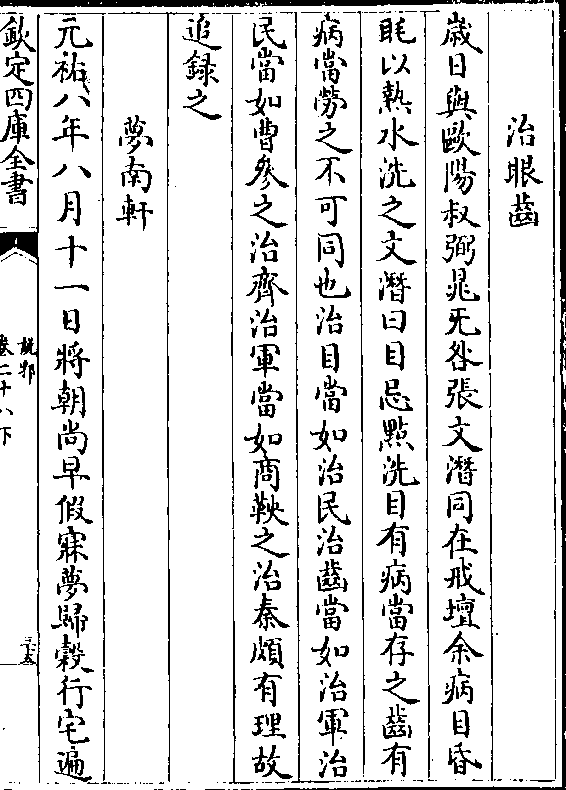 治眼齒
歲日與歐陽叔弼晁无咎張文潛同在戒壇余病目昏
眊以熱水洗之文潛曰目忌點洗目有病當存之齒有
病當勞之不可同也治目當如治民治齒當如治軍治
民當如曹參之治齊治軍當如商鞅之治秦頗有理故
追録之
夢南軒
元祐八年八月十一日將朝尚早假寐夢歸穀行宅遍
欽定四庫全書
說郛
卷二十八下
三十五